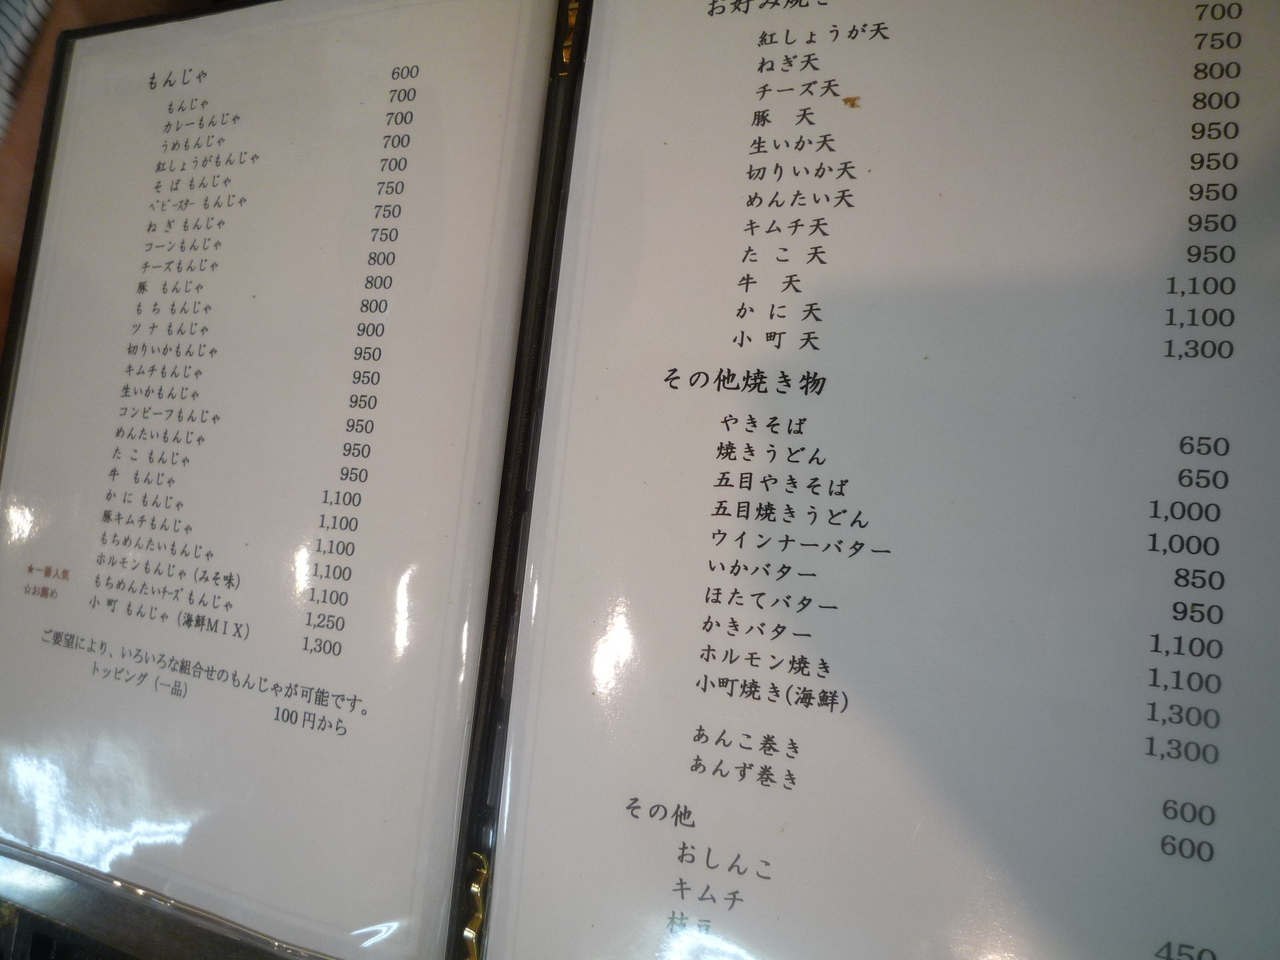 もんじゃ
もんじゃ 600
カレーもんじゃ 700
うめもんじゃ 700
紅しょうがもんじゃ 700
そば もんじゃ 700
ベビースター もんじゃ 750
ねぎ もんじゃ 750
コーンもんじゃ 750
チーズもんじゃ 800
豚 もんじゃ 800
もち もんじゃ 800
ツナ もんじゃ 900
切りいかもんじゃ 950
キムチもんじゃ 950
生いかもんじゃ 950
コンビーフもんじゃ 950
めんたいもんじゃ 950
たこ もんじゃ 950
牛 もんじゃ 1,100
かに もんじゃ 1,100
豚キムチもんじゃ 1,100
もちめんたいもんじゃ 1,100
ホルモンもんじゃ(みそ味) 1,100
★一番人気 もちめんたいチーズもんじゃ 1,250
☆お薦め 小町 もんじゃ(海鮮MIX) 1,300
ご要望により、いろいろな組合せのもんじゃが可能です。
トッピング(一品) 100円から
お好み焼き
紅しょうが天 700
ねぎ天 750
チーズ天 800
豚 天 800
生いか天 950
切りいか天 950
めんたい天 950
キムチ天 950
たこ 天 950
牛 天 1,100
かに 天 1,100
小町 天 1,300
その他焼き物
やきそば 650
焼きうどん 650
五目やきそば 1,000
五目焼きうどん 1,000
ウインナーバター 850
いかバター 950
ほたてバター 1,100
かきバター 1,100
ホルモン焼き 1,300
小町焼き(海鮮) 1,300
あんこ巻き 600
あんず巻き 600
その他
おしんこ 450
キムチ
枝豆